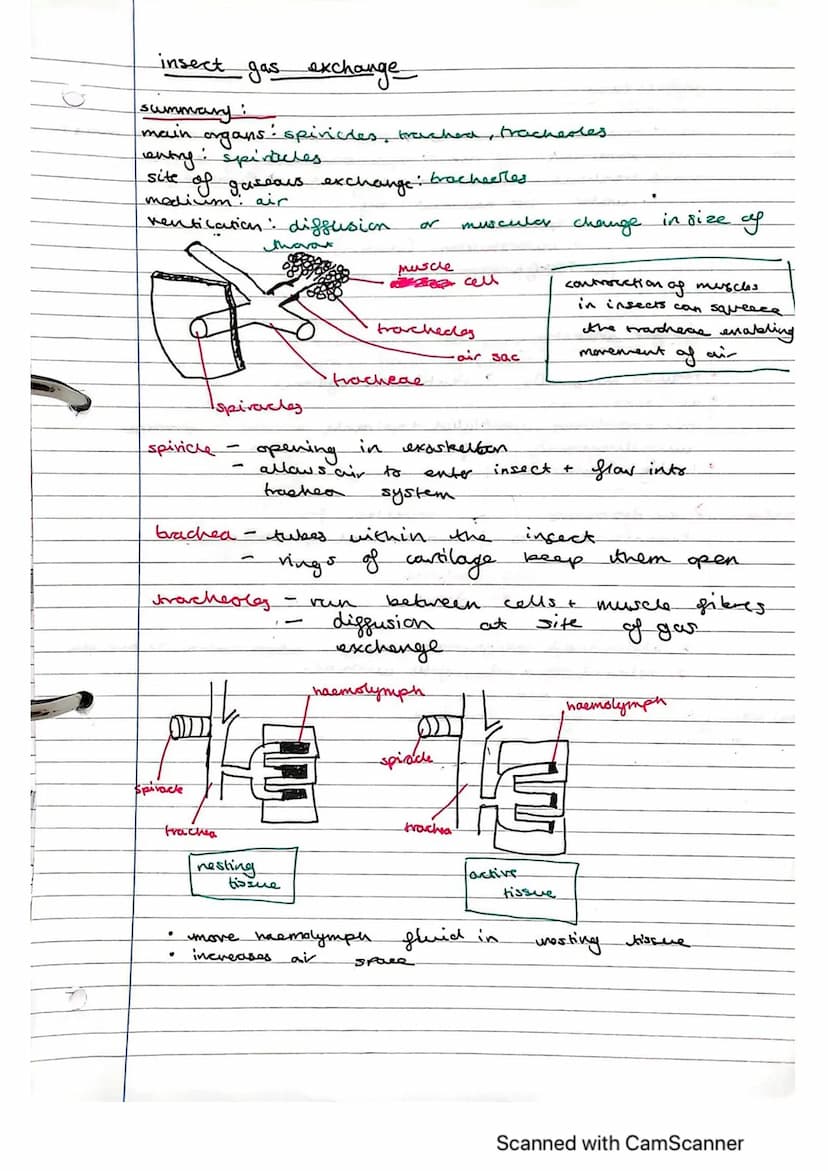 insect gas exchange
summary:
main organs: spiricles, trachea, tracheoles
entry: spiracles
site of gaseous exchange: tracheoles
medium: air
ventilation: diffusion or muscular change in size of
thorax
muscle
cell
tracheoles
air sac
tracheae
spiracles
contraction of muscles
in insects can squeeze
the tracheae enabling
movement of air
spiricle - opening in exoskeleton
- allows air to enter insect + flow into
trachea system
trachea - tubes within the insect
- rings of cartilage keep them open
tracheoles - run between cells + muscle fibres
- diffusion at site of gas
exchange
haemolymph
spiracle
trachea
resting
tissue
haemolymph
spiracle
trachea
active
tissue
• move haemolymph fluid in resting tissue
• increases air space
Scanned with CamScanner